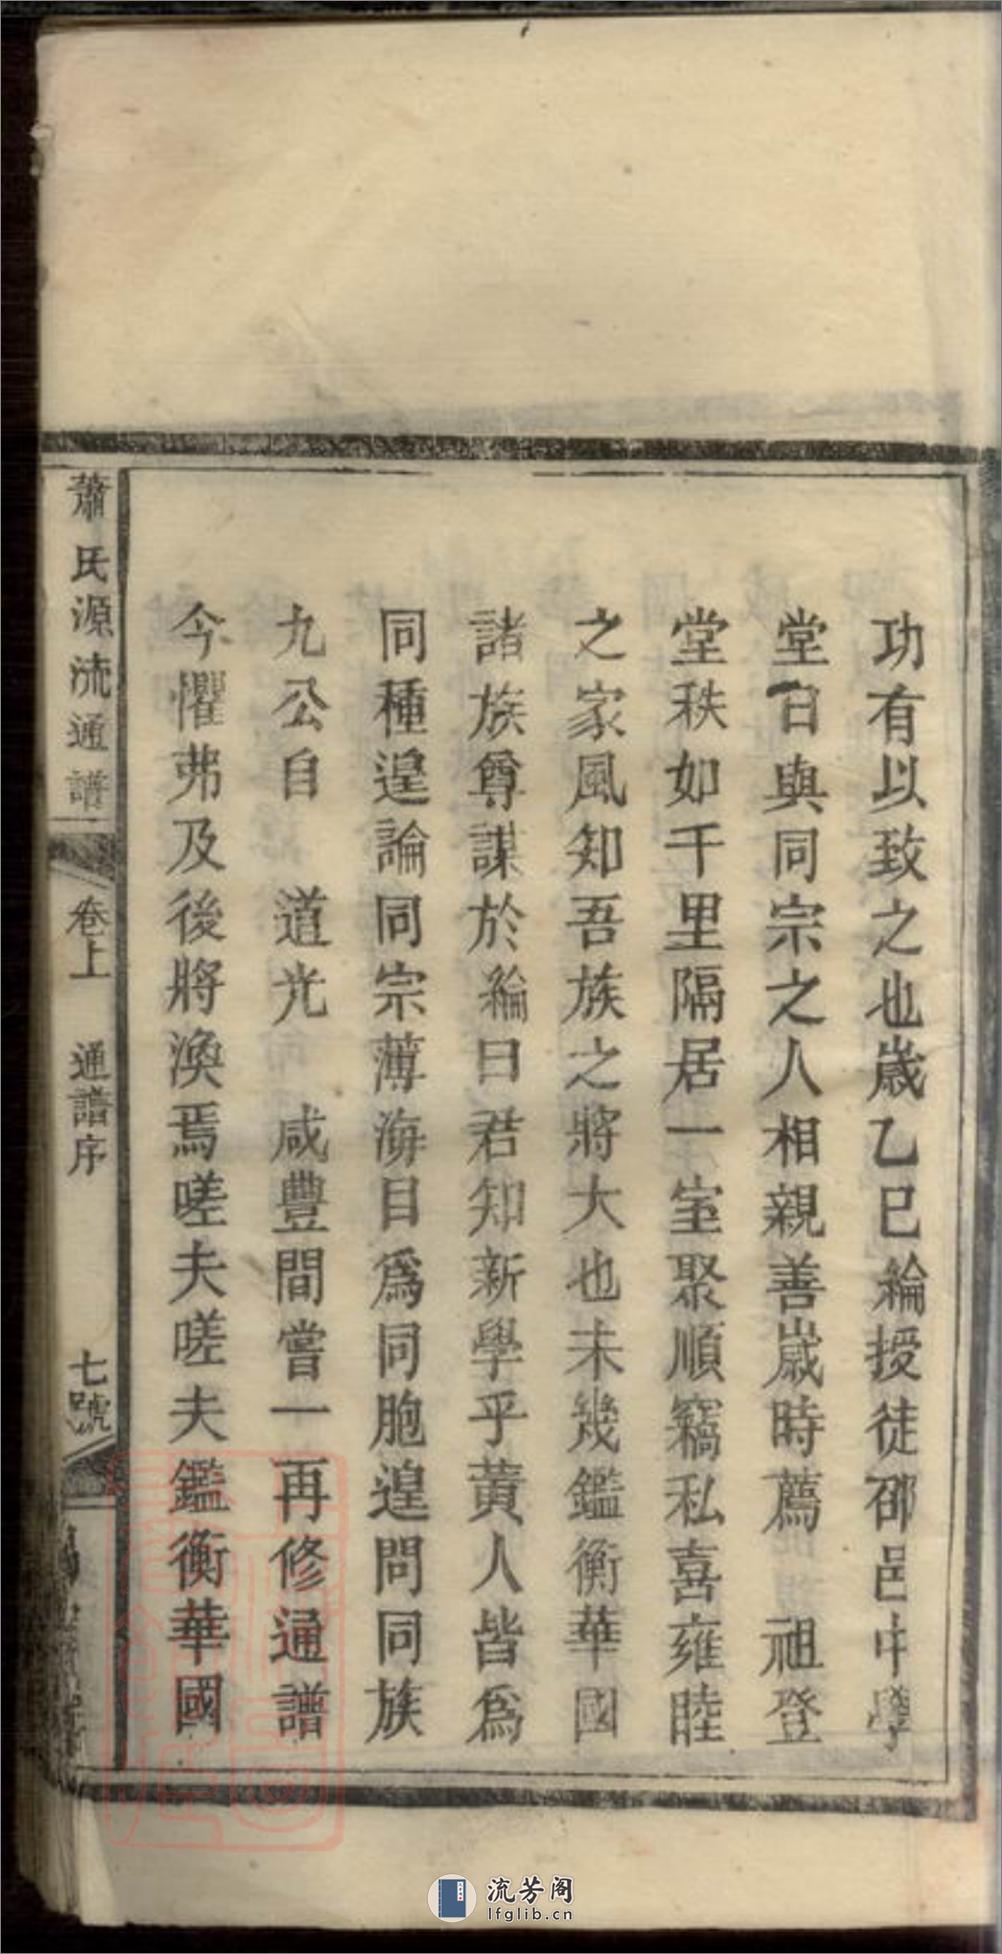 功有以致之也歲乙巳綸授徒邵邑中學
堂日與同宗之人相親善歲時薦　祖登
堂秩如千里隔居一室聚順竊私喜雍睦
之家風知吾族之將大也未幾鑑衡華國
諸族尊謀於綸曰君知新學乎黃人皆爲
同種遑論同宗薄海目爲同胞遑問同族
九公自　道光　咸豐間嘗一再修通譜
今懼弗及後將渙焉嗟夫嗟夫鑑衡華國
蕭氏源流通譜　卷上　通譜序　七號
流芳阁
lfglib.cn